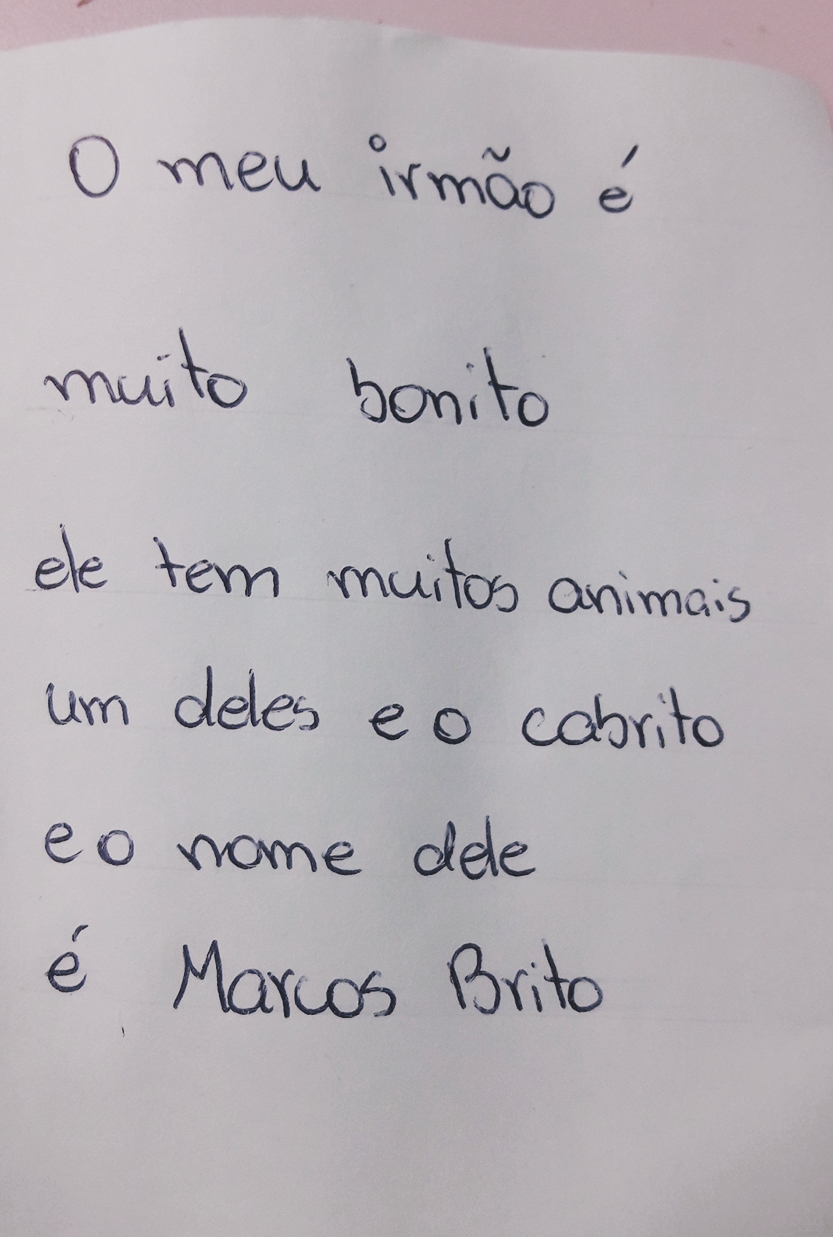 O meu irmão é
muito bonito
ele tem muitos animais
um deles e o cabrito
e o nome dele
é Marcos Brito